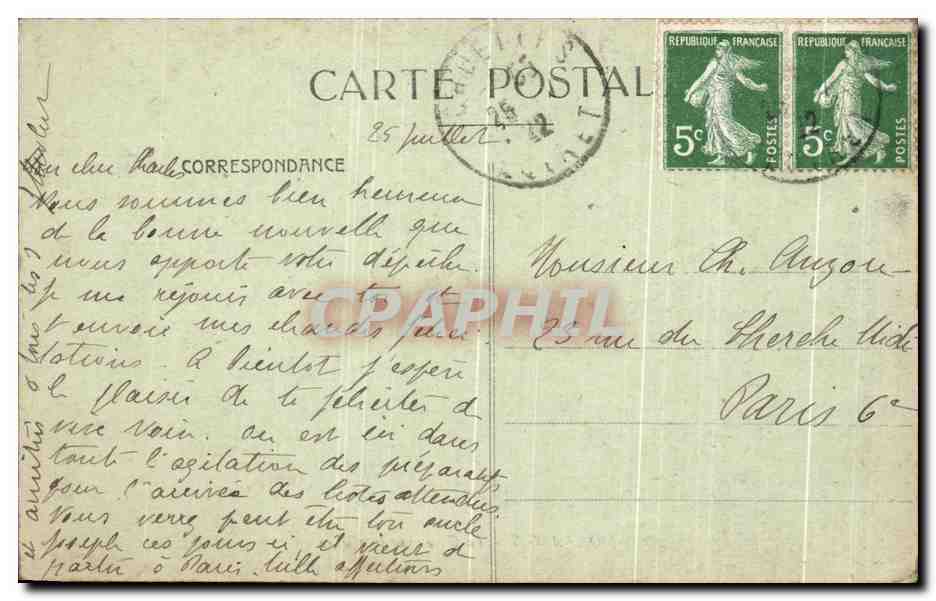 CARTE POSTALE
RÉPUBLIQUE FRANÇAISE
5c
POSTES
RÉPUBLIQUE FRANÇAISE
5c
POSTES
25 juillet
CORRESPONDANCE
Mon cher Charles
Nous sommes bien heureux
de la bonne nouvelle que
nous apporte votre dépêche.
Je me réjouis avec toi et
t'envoie mes chauds félici
tations. à bientôt j'espère
le plaisir de te féliciter de
vive voix. on est ici dans
toute l'agitation des préparatifs
pour l'arrivée des hôtes attendus.
Vous verrez peut être ton oncle
Joseph ces jours-ci, il vient de
partir à Paris. Mille affections
et amitiés à tous les 3
Monsieur Ch. Auzou
23 rue du Cherche Midi
Paris 6e
CPAPHIL